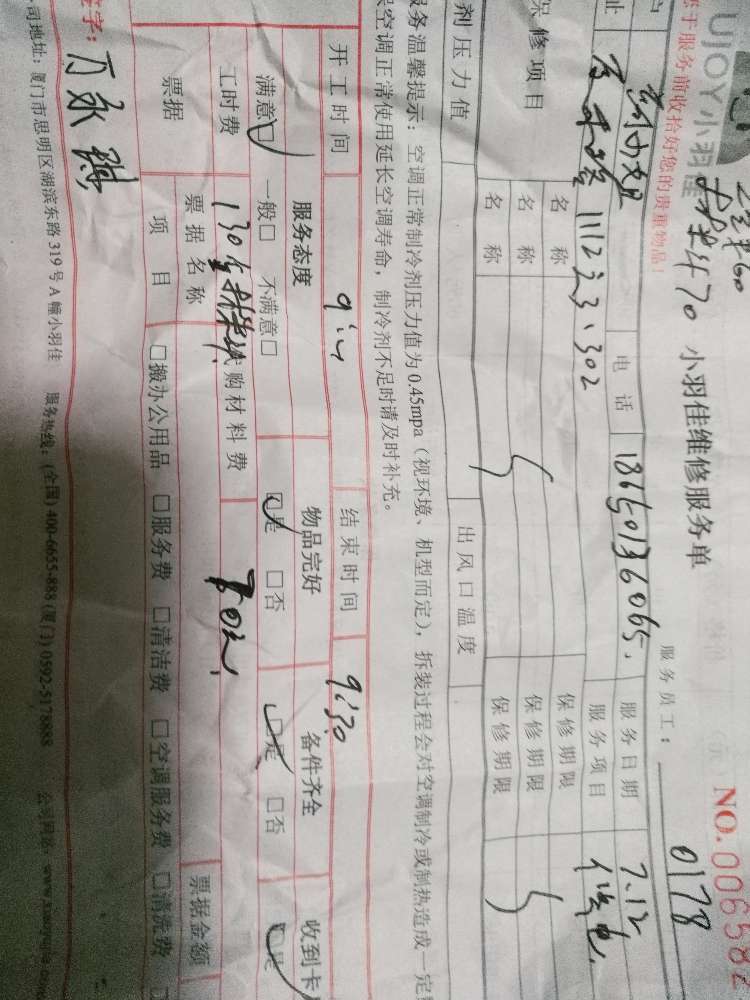 UJOY小羽佳
小羽佳维修服务单
NO.006582
于服务前收拾好您的贵重物品!
服务员工:
0178
电话
18650136065
服务日期
7.12
1112之3、302
服务项目
保修项目
名称
保修期限
名称
保修期限
名称
保修期限
剂压力值
出风口温度
服务温馨提示:空调正常制冷剂压力值为0.45mpa(视环境、机型而定),拆装过程会对空调制冷或制热造成一定
空调正常使用延长空调寿命,制冷剂不足时请及时补充。
开工时间
9:00
结束时间
9:30
服务态度
物品完好
备件齐全
收到卡
满意□
一般□
不满意□
□是
□否
□是
□否
□是
工时费
130
购材料费
票据
票据名称
票据金额
项目
□搬办公用品
□服务费
□清洁费
□空调服务费
□清洗费
签字:
司地址:厦门市思明区湖滨东路319号A幢小羽佳
服务热线:(全国)400-6655-888(厦门)0592-5178888
公司网址: